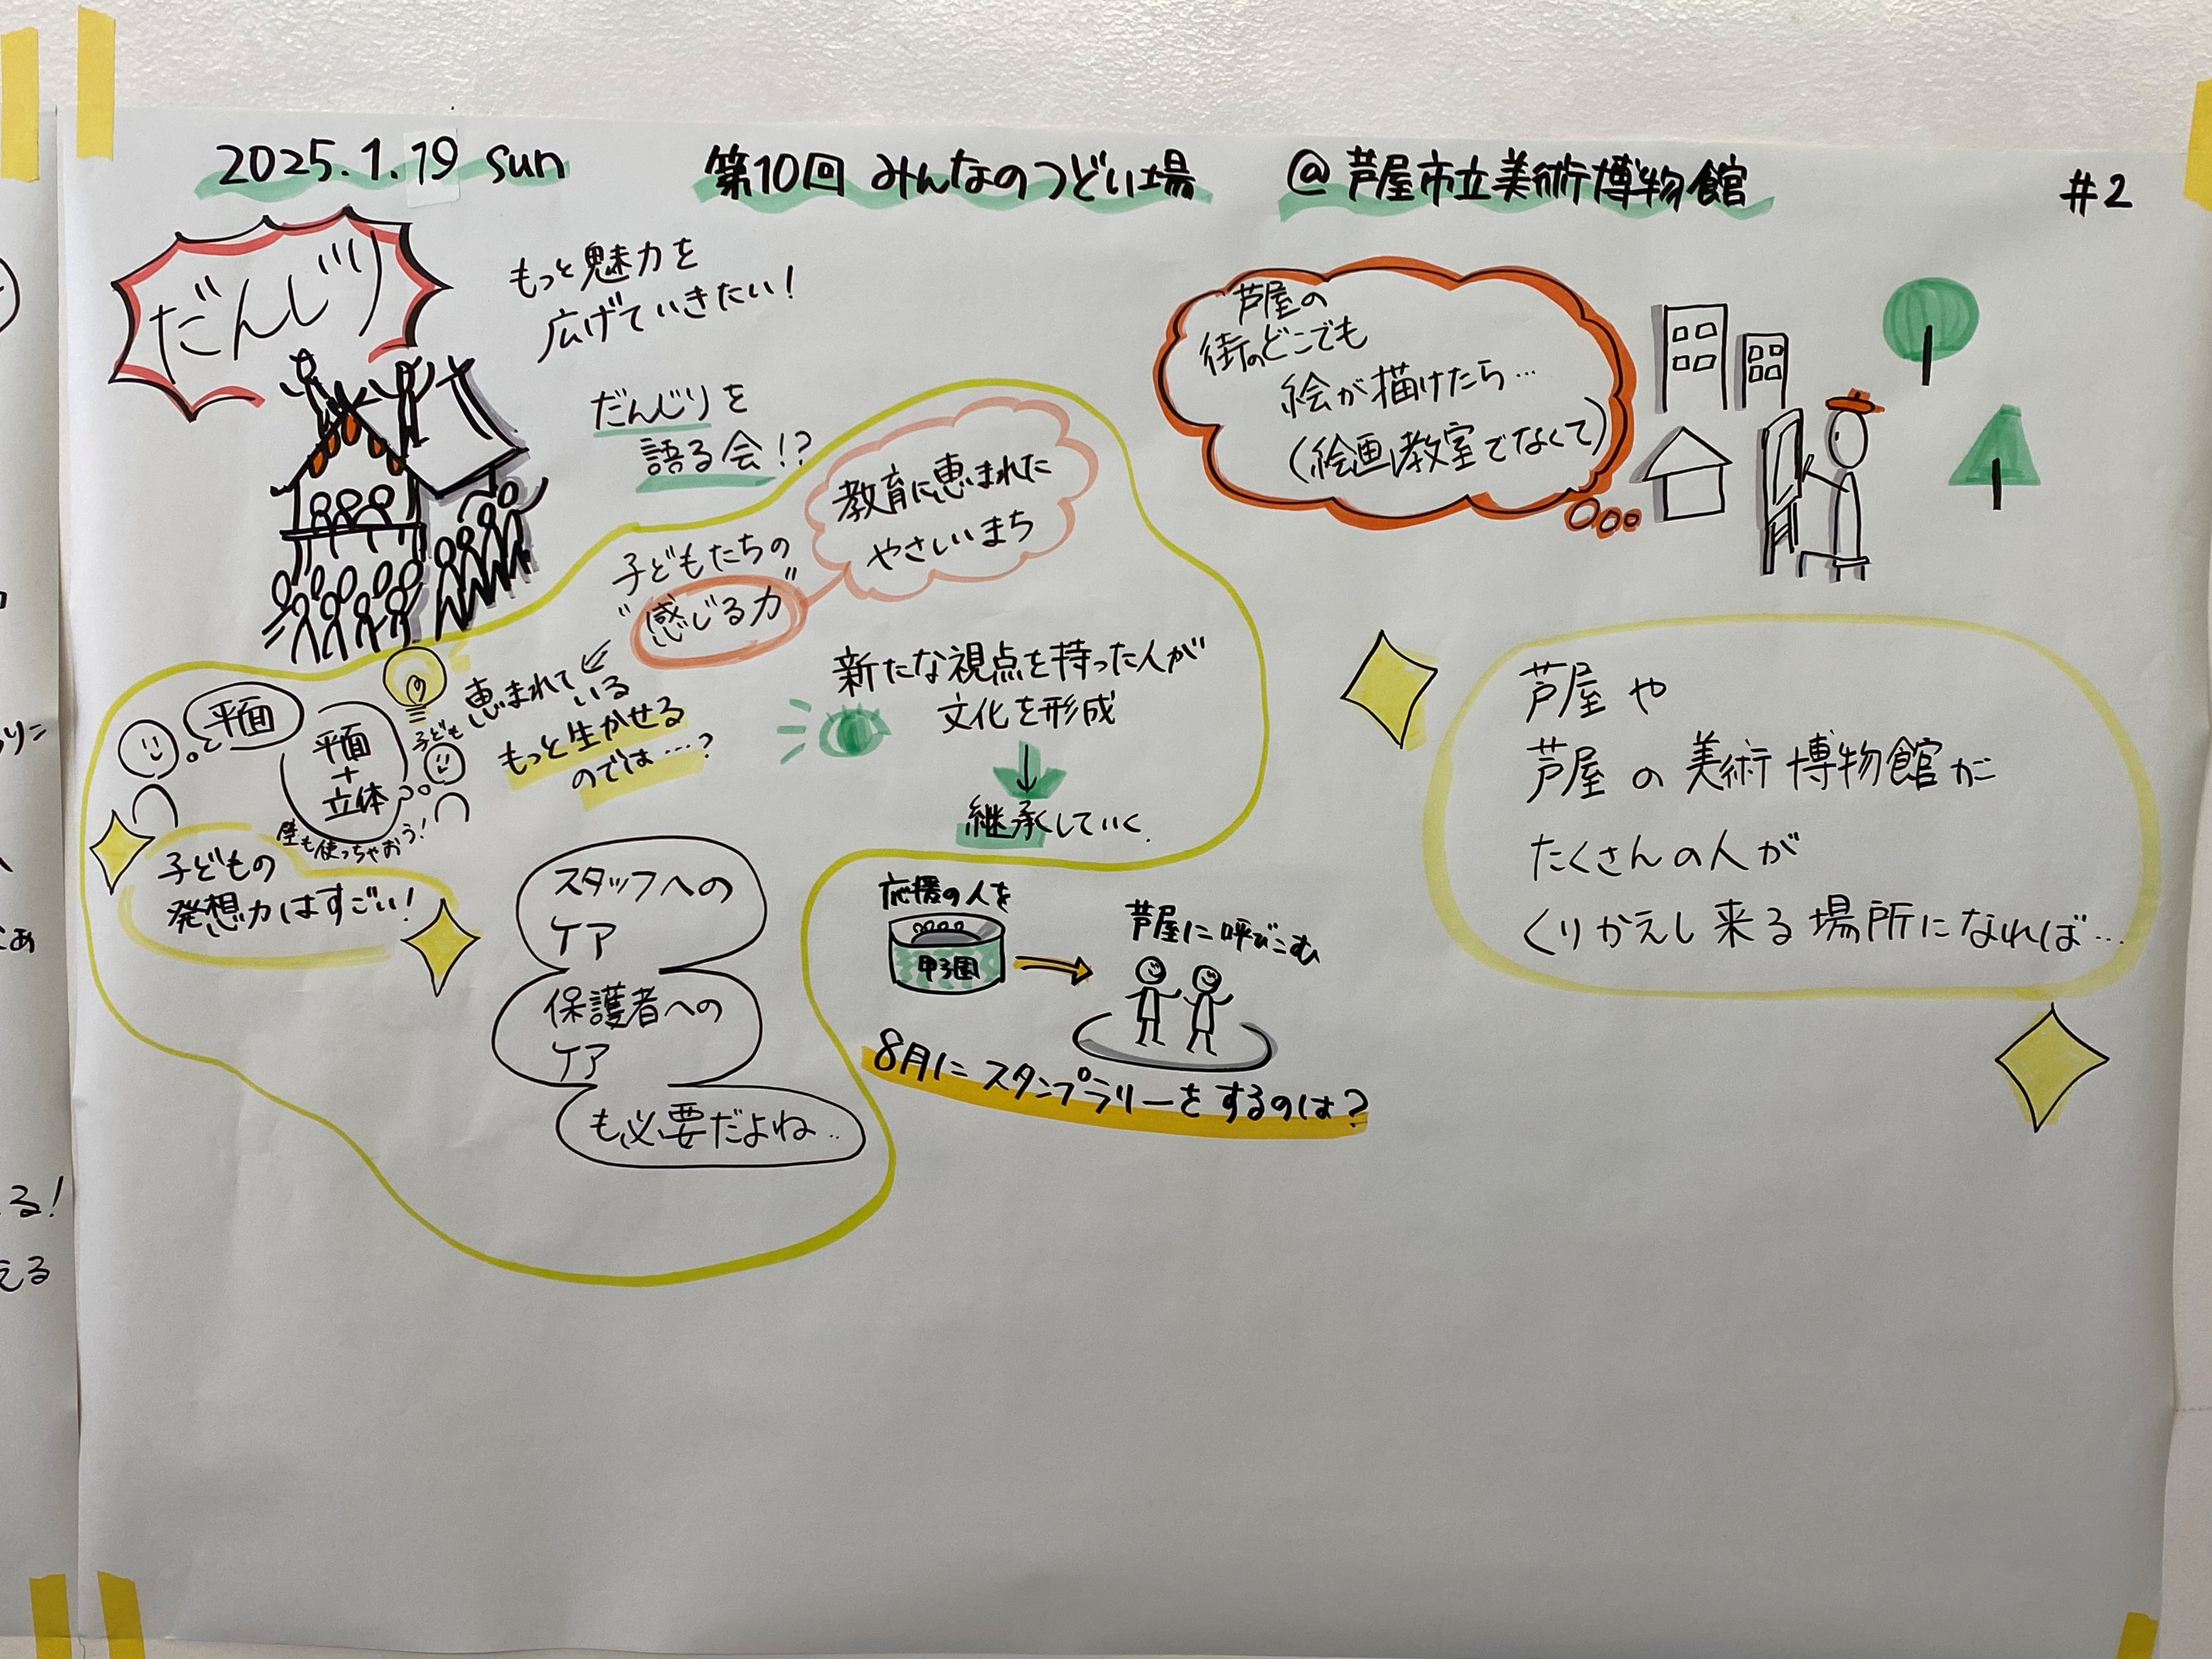 2025.1.19 sun
第10回 みんなのつどい場
@芦屋市立美術博物館
#2
だんじり
もっと魅力を
広げていきたい！
だんじりを
語る会！？
教育に恵まれた
やさしいまち
子どもたちの
“感じる力”
恵まれて
いる
もっと生かせる
のでは…？
新たな視点を持った人が
文化を形成
継承していく.
平面
平面
+
立体
子ども
壁も使っちゃおう！
子どもの
発想力はすごい！
スタッフへの
ケア
保護者への
ケア
も必要だよね..
応援の人を
甲子園
芦屋に呼びこむ
8月にスタンプラリーをするのは？
芦屋の
街のどこでも
絵が描けたら…
（絵画教室でなくて）
芦屋や
芦屋の美術博物館が
たくさんの人が
くりかえし来る場所になれば…
る！
える